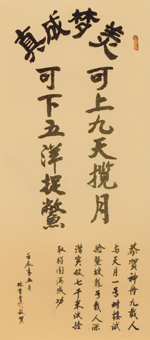 美梦成真
可上九天揽月
可下五洋捉鳖
恭贺神舟九载人
与天月一号对接试
验暨蛟龙号载人深
潜实仪七千米试验
取得圆满成功
壬辰年五月
敬贺